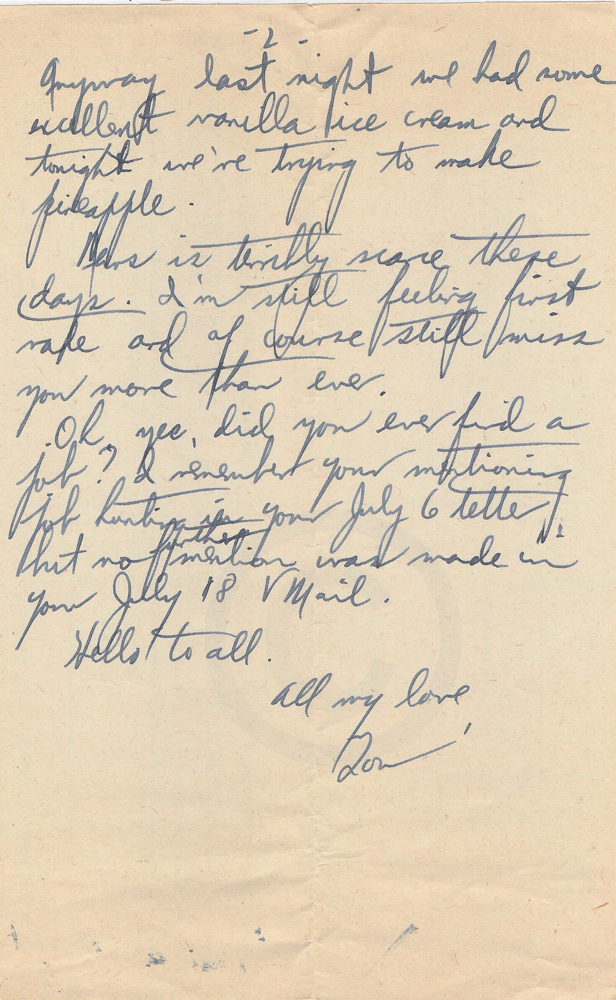 -2-
Anyway last night we had some
excellent vanilla ice cream and
tonight we're trying to make
pineapple.
News is terribly scarce these
days. I'm still feeling first
rate and of course still miss
you more than ever.
Oh, yes, did you ever find a
job? I remember your mentioning
job hunting in your July 6 letter
but no further mention was made in
your July 18 V Mail.
Hello to all.
All my love